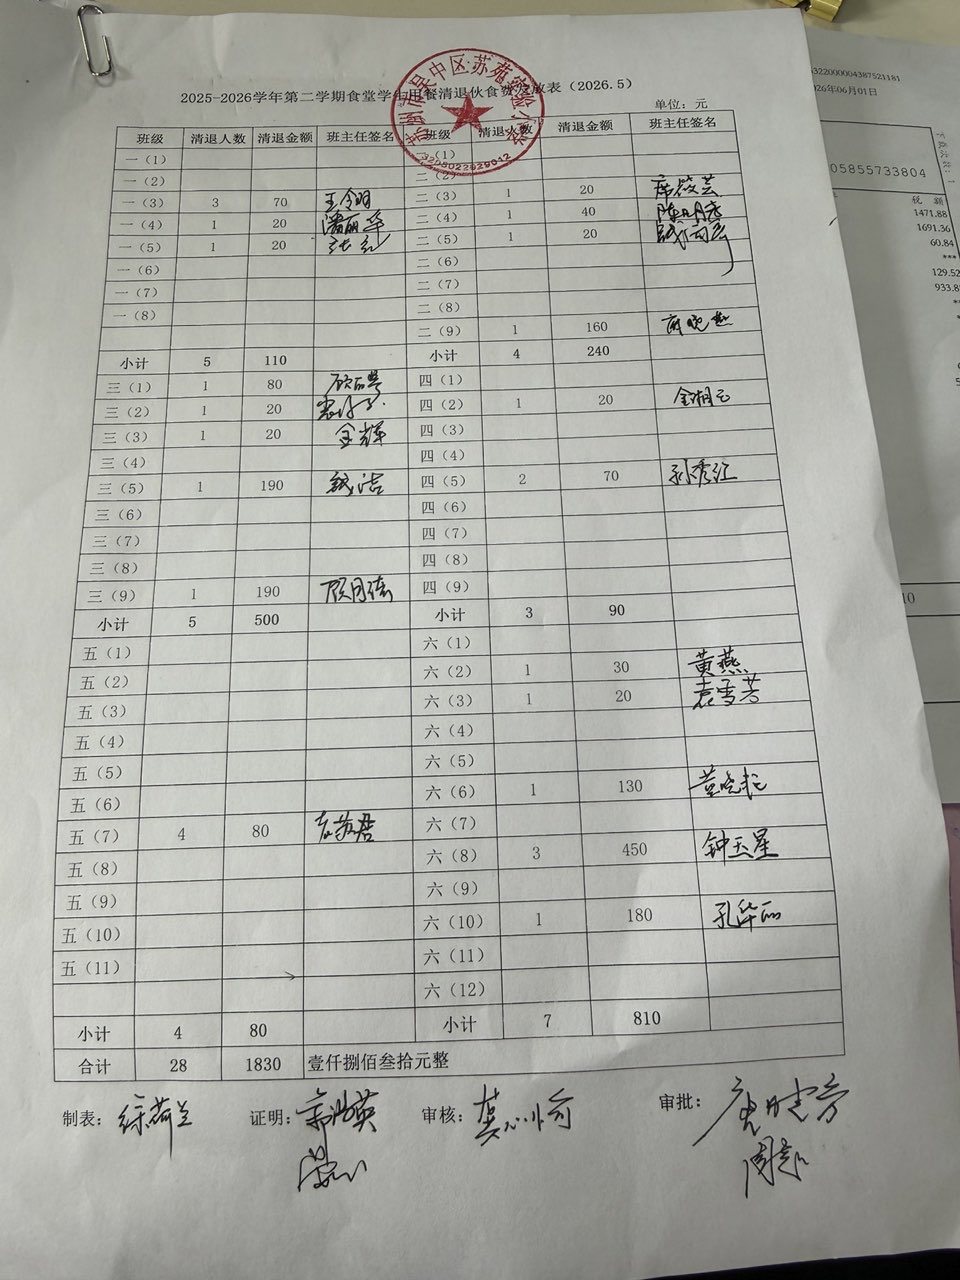 2025-2026学年第二学期食堂学生用餐清退伙食费发放表（2026.5）
单位：元
班级 清退人数 清退金额 班主任签名 班级 清退人数 清退金额 班主任签名
一（1） 二（1）
一（2） 二（2）
一（3） 3 70 王令明 二（3） 1 20 席筱芸
一（4） 1 20 潘丽华 二（4） 1 40
一（5） 1 20 张红 二（5） 1 20
一（6） 二（6）
一（7） 二（7）
一（8） 二（8）
二（9） 1 160
小计 5 110 小计 4 240
三（1） 1 80 四（1）
三（2） 1 20 四（2） 1 20 金湘元
三（3） 1 20 金辉 四（3）
三（4） 四（4）
三（5） 1 190 钱洁 四（5） 2 70 孙秀江
三（6） 四（6）
三（7） 四（7）
三（8） 四（8）
三（9） 1 190 四（9）
小计 5 500 小计 3 90
五（1） 六（1）
五（2） 六（2） 1 30 黄燕
五（3） 六（3） 1 20 袁雪芳
五（4） 六（4）
五（5） 六（5）
五（6） 六（6） 1 130
五（7） 4 80 六（7）
五（8） 六（8） 3 450 钟玉星
五（9） 六（9）
五（10） 六（10） 1 180 孔华丽
五（11） 六（11）
六（12）
小计 4 80 小计 7 810
合计 28 1830 壹仟捌佰叁拾元整
制表： 徐荷兰 证明： 审核： 审批：
吴中区苏苑实验小学
3205022629042
322000004387523181
026年06月01日
05855733804
下载次数：1
税 额
1471.88
1691.36
60.84
***
129.52
933.8
10